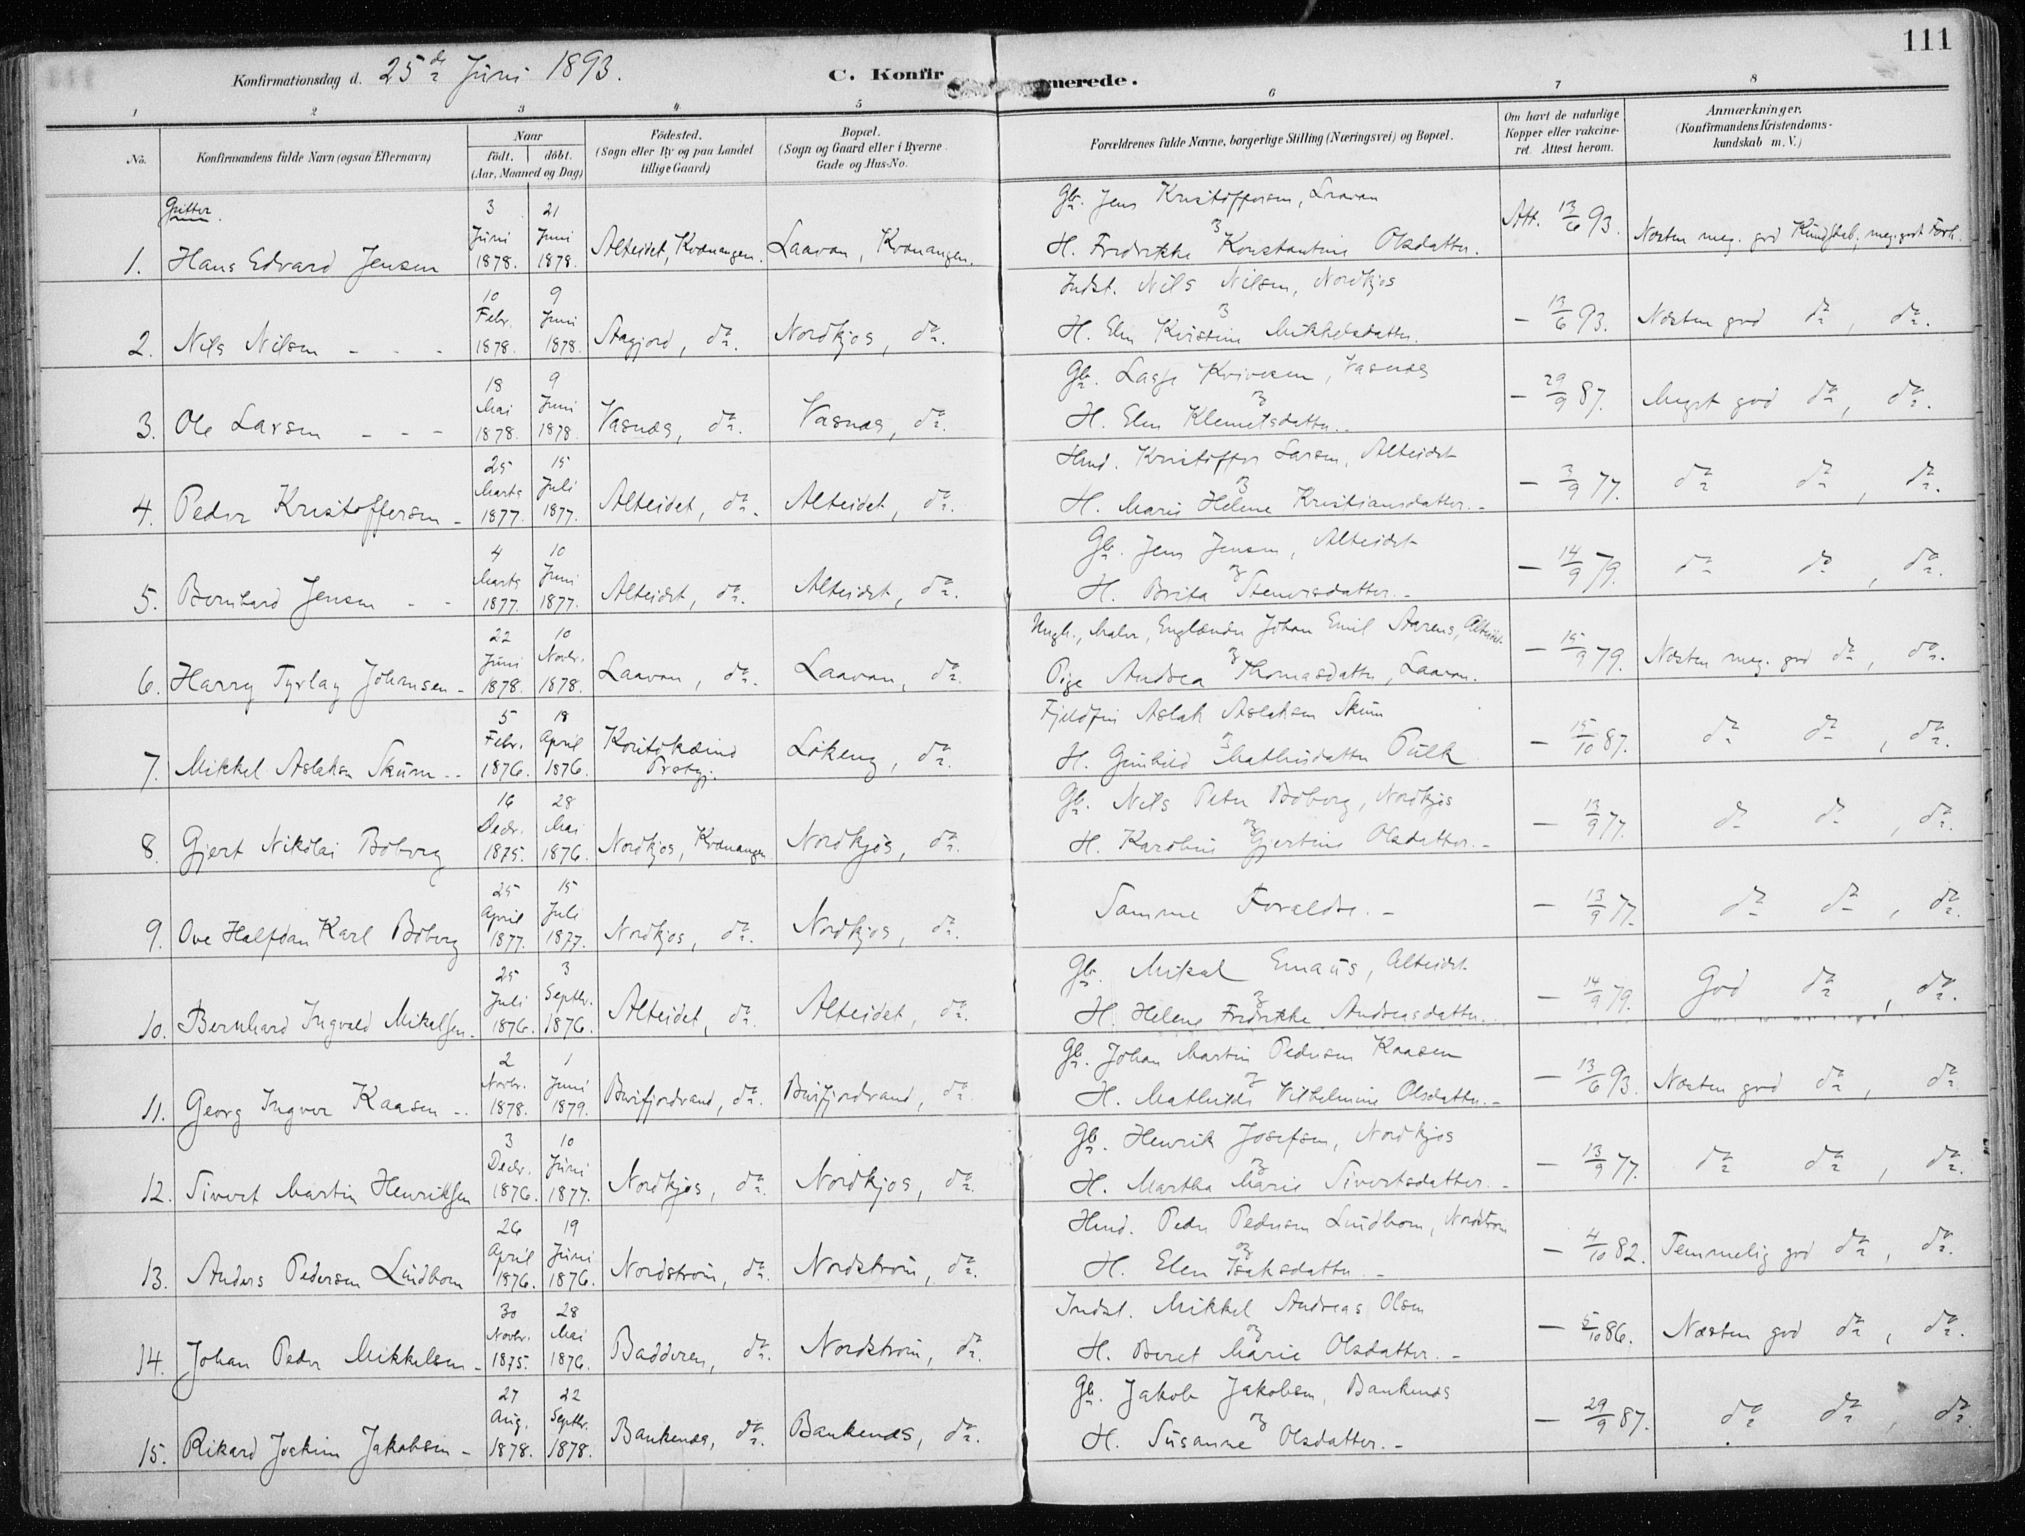 111
Konfirmationsdag d. 25de Juni 1893.
C. Konfirmerede.
1 2 3 4 5 6 7 8
No.
Konfirmandens fulde Navn (ogsaa Efternavn)
Naar
født. døbt.
(Aar, Maaned og Dag)
Fødested.
(Sogn eller By og paa Landet
tillige Gaard)
Bopæl.
(Sogn og Gaard eller i Byerne
Gade og Hus-No.
Forældrenes fulde Navne, borgerlige Stilling (Næringsvei) og Bopæl.
Om havt de naturlige
Kopper eller vakcine-
ret. Attest herom.
Anmærkninger.
(Konfirmandens Kristendoms-
kundskab m. V.)
Gutter.
3 21 Gbr. Jens Kristoffersen, Laavan
Juni Juni
1. Hans Edvard Jensen 1878. 1878. Alteidet, Kvænangen. Laavan, Kvænangen. H. Fredrikke Konstantine Olsdatter. Att. 13/6 93. Næsten meg. god Kundskab, meg. godt Forh.
10 9 Indst. Nils Nilsen, Nordkjos
Febr. Juni
2. Nils Nilsen - - - 1878. 1878. do. Nordkjos, do. H. Elen Kristine Mikkelsdatter. - 13/6 93. Næsten god do, do.
18 9 Gbr. Vasnæs
Mai Juni
3. Ole Larsen - - - 1878. 1878. Vasnæs, do. Vasnæs, do. H. Elen Klemetsdatter. - 29/9 87. Meget god do, do.
25 15 Hmd. Kristoffer Larsen, Alteidet
Marts Juli
4. Peder Kristoffersen - 1877. 1877. Alteidet, do. Alteidet, do. H. Marie Helene Kristiansdatter. - 3/9 77. do do, do.
4 10 Gbr. Jens Jensen, Alteidet
Marts Juni
5. Bernhard Jensen - - 1877. 1877. Alteidet, do. Alteidet, do. H. Brita Stenersdatter. - 14/9 79. do do, do.
22 10 Ungk., Maler, Englænder Johan Emil Aarens, Alteidet
Juni Novbr.
6. Harry Tyrlay Johansen - 1878. 1878. Laavan, do. Laavan, do. Pige Andrea Thomasdatter, Laavan. - 15/9 79. Næsten meg. god do, do.
5 18 Fjeldfin Aslak Aslaksen Skum
Febr. April Koutokæino
7. Mikkel Aslaksen Skum - 1876. 1876. Præstgj. Løkeng, do. H. Gunhild Mathisdatter Pulk - 15/10 87. do do, do.
16 28 Gbr. Nils Peter Boberg, Nordkjos
Decbr. Mai
8. Gjert Nikolai Boberg 1875. 1876. Nordkjos, Kvænangen Nordkjos, do. H. Karoline Gjertine Olsdatter. - 13/9 77. do do, do.
25 15
April Juli
9. Ove Halfdan Karl Boberg 1877. 1877. Nordkjos, do. Nordkjos, do. Samme Forældre. - 13/9 77. do do, do.
25 3 Gbr. Mikal Emaus, Alteidet
Juli Septbr.
10. Bernhard Ingvald Mikalsen. 1876. 1876. Alteidet, do. Alteidet, do. H. Helene Fredrikke Andreasdatter. - 14/9 79. God do, do.
2 1 Gbr. Johan Martin Pedersen Kaasen
Novbr. Juni
11. Georg Ingvar Kaasen - 1878. 1879. Burfjordvand, do. Burfjordvand, do H. Mathilde Vilhelmine Olsdatter. - 13/6 93. Næsten god do, do
3 10 Gbr. Henrik Josefsen, Nordkjos
Decbr. Juni
12. Sivert Martin Henriksen 1876. 1877. Nordkjos, do. Nordkjos, do. H. Martha Marie Sivertsdatter. - 13/9 77. do do, do.
26 19 Hmd. Peder Pedersen Lindbom, Nordstrøm
April Juni
13. Anders Pedersen Lindbom 1876. 1876. Nordstrøm, do. Nordstrøm, do. H. Elen Isaksdatter - 4/10 82. Temmelig god do, do.
30 28 Indst. Mikkel Andreas Olsen
Novbr. Mai
14. Johan Peder Mikkelsen - 1875. 1876. Badderen, do. Nordstrøm, do. H. Beret Marie Olsdatter. - 5/10 86. Næsten god do, do.
27 22 Gbr. Jakob Jakobsen, Bankenæs
Aug. Septbr.
15. Rikard Joakim Jakobsen - 1878. 1878. Bankenæs, do. Bankenæs, do. H. Susanne Olsdatter. - 29/9 87. do do, do.